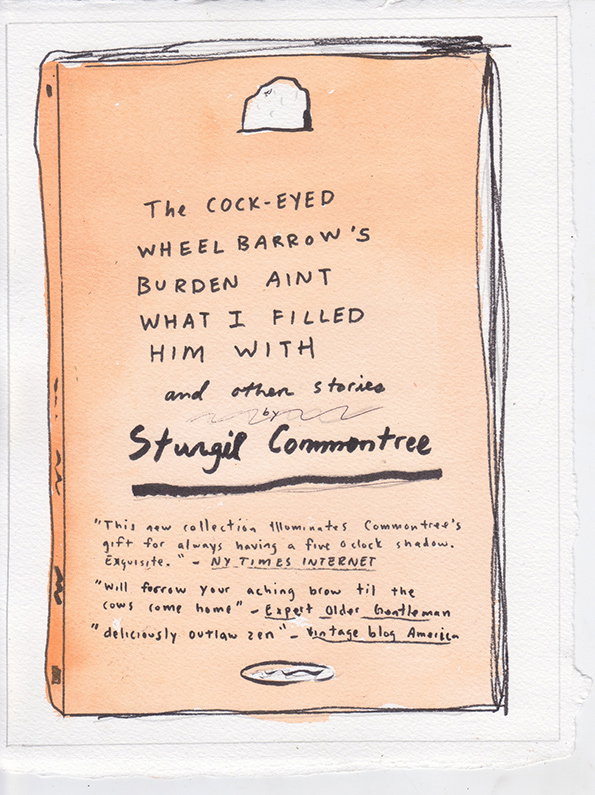 The COCK-EYED
WHEEL BARROW'S
BURDEN AINT
WHAT I FILLED
HIM WITH
and other stories
by
Sturgil Commontree
"This new collection illuminates Commontree's
gift for always having a five o clock shadow.
Exquisite." - NY TIMES INTERNET
"Will forrow your aching brow til the
cows come home" - Expert Older Gentleman
"deliciously outlaw zen" - Vintage blog America